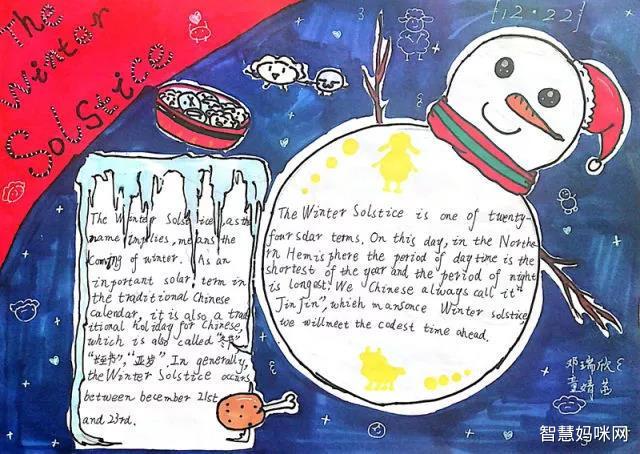 The
Winter
Solstice
[12·22]
The Winter Solstice, as the
name implies, means the
coming of winter. As an
inportant solar term in
the traditional Chinese
calendar, it is also a trad
itional holiday for Chinese,
which is also called "冬节"
"亚岁". In generally,
the Winter Solstice occurs
between becember 21st
and 23rd.
The Winter Solstice is one of twenty-
four solar terms. On this day, in the Northe
rn Hemisphere the period of daytime is the
shortest of the year and the period of night
is longest. We Chinese always call it "
Jin Jin", which mansonce Winter solstice,
we will meet the codest time ahead.
邓瑞欣
童婧
智慧妈咪网